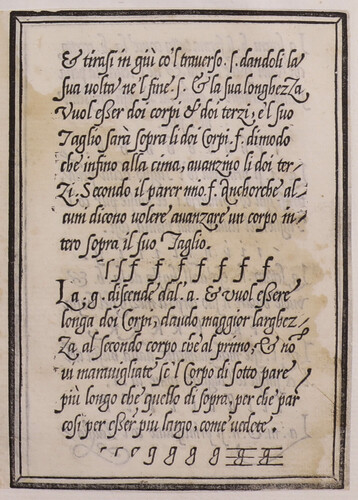 & tirasi in giù co'l traverso. s. dandoli la
sua volta ne'l fine. s. & la sua longhezza
vuol esser doi corpi & doi terzi, e'l suo
Taglio sarà sopra li doi Corpi. f. dimodo
che infino alla cima, avanzino li doi ter/
zi, Secondo il parer mio. f. Anchorche al/
cuni dicono volere avanzare un corpo in/
tero sopra il suo Taglio.
f f f f f f f f
La. g. discende dal. a. & vuol essere
longa doi Corpi, dando maggior larghez/
za, al secondo corpo che al primo, & nō
vi maravigliate se'l Corpo di sotto pare
più longo che quello di sopra, per che par
cosi per esser piu largo. come vedete.
g g g g g